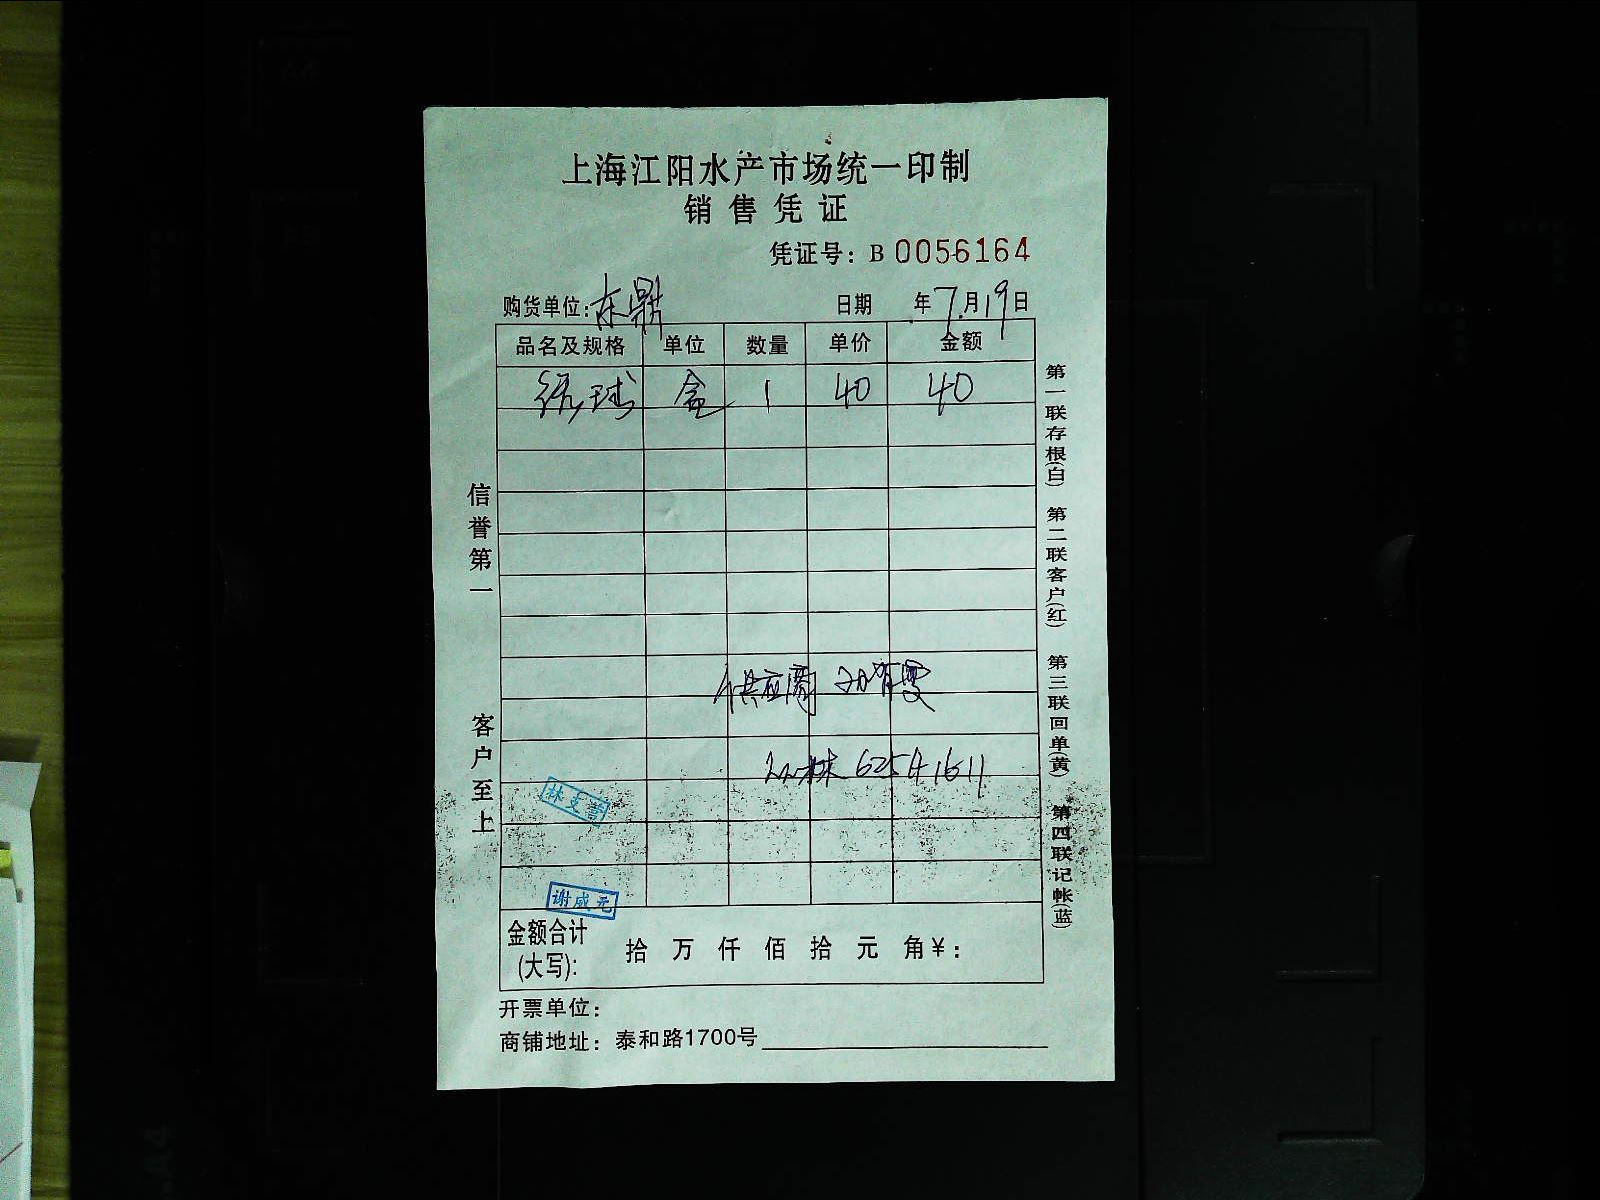 上海江阳水产市场统一印制
销售凭证
凭证号：B 0056164
购货单位：东鼎 日期 年7月19日
品名及规格 单位 数量 单价 金额
绣球 盒 1 40 40
供应商
林 62541611
林支营
谢成元
金额合计(大写)： 拾 万 仟 佰 拾 元 角 ¥：
开票单位：
商铺地址：泰和路1700号
信誉第一 客户至上
第一联存根(白) 第二联客户(红) 第三联回单(黄) 第四联记帐(蓝)